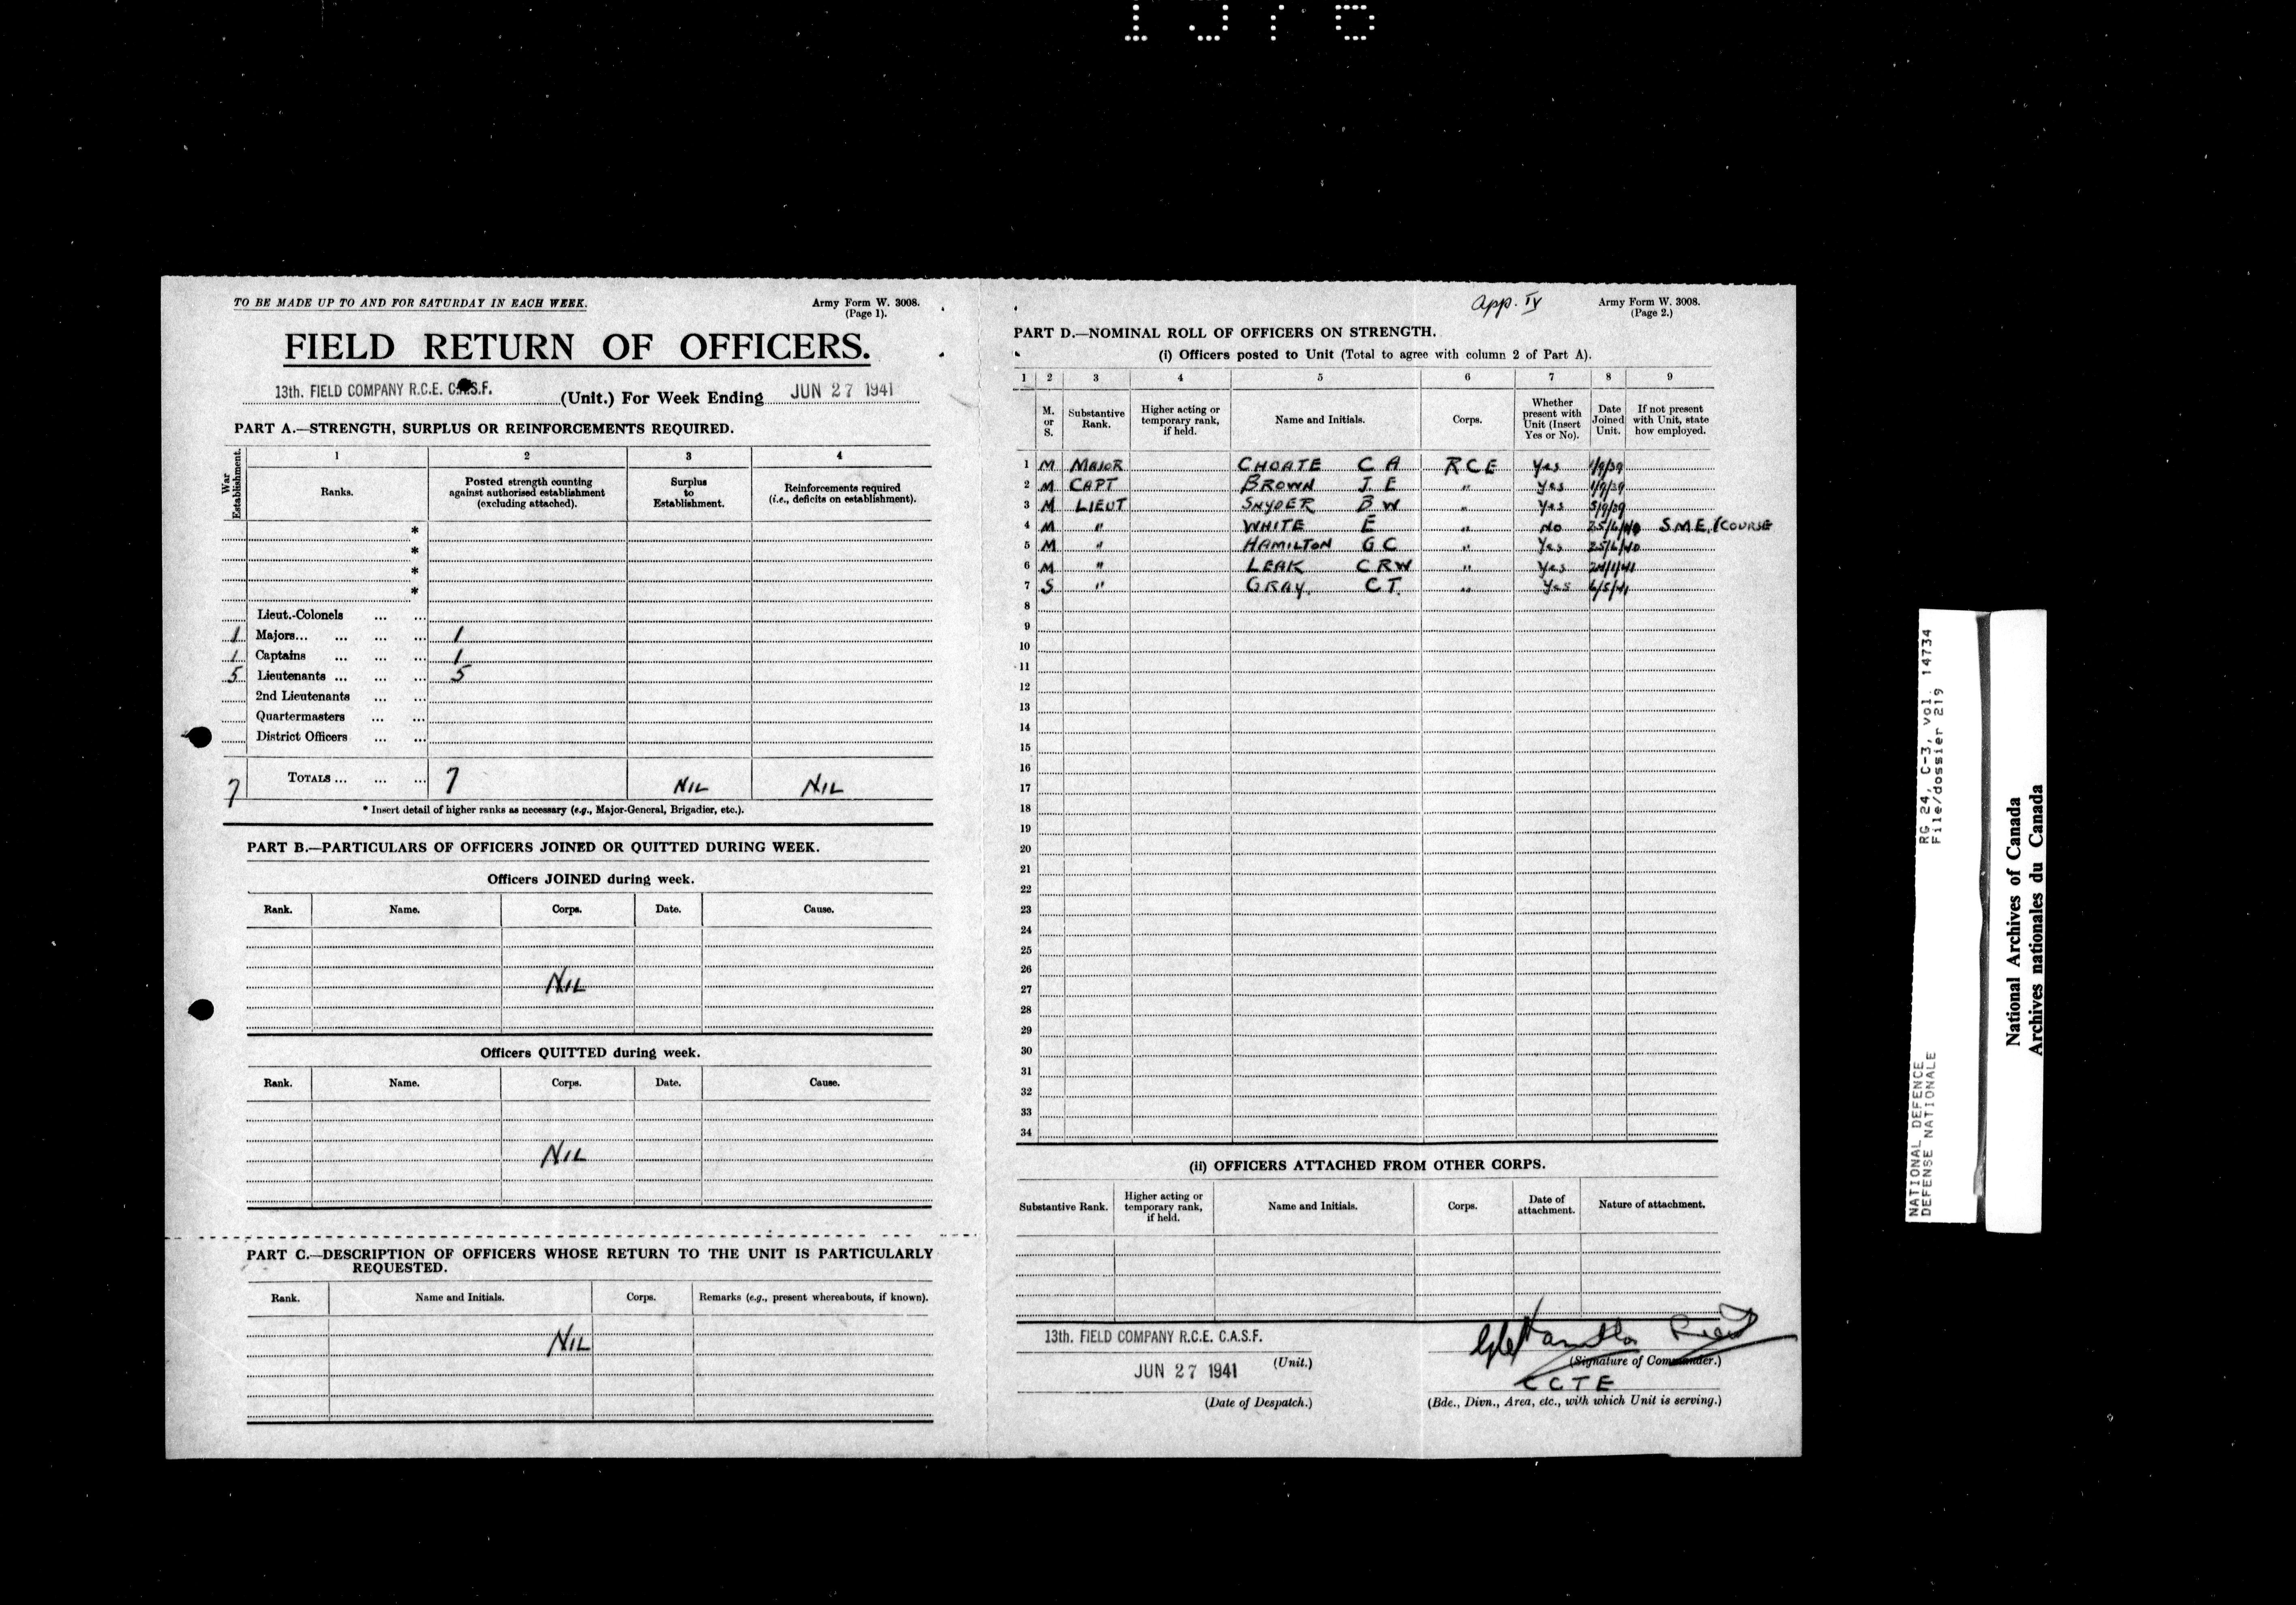 1376
TO BE MADE UP TO AND FOR SATURDAY IN EACH WEEK.
Army Form W. 3008.
(Page 1).
FIELD RETURN OF OFFICERS.
13th. FIELD COMPANY R.C.E. C.A.S.F. (Unit.) For Week Ending JUN 27 1941
PART A.—STRENGTH, SURPLUS OR REINFORCEMENTS REQUIRED.
War Establishment.
1 2 3 4
Ranks.
Posted strength counting against authorised establishment (excluding attached).
Surplus to Establishment.
Reinforcements required (i.e., deficits on establishment).
*
*
*
*
Lieut.-Colonels ... ...
1 Majors... ... ... ... 1
1 Captains ... ... ... 1
5 Lieutenants ... ... ... 5
2nd Lieutenants ... ...
Quartermasters ... ...
District Officers ... ...
7 TOTALS ... ... ... 7 NIL NIL
* Insert detail of higher ranks as necessary (e.g., Major-General, Brigadier, etc.).
PART B.—PARTICULARS OF OFFICERS JOINED OR QUITTED DURING WEEK.
Officers JOINED during week.
Rank. Name. Corps. Date. Cause.
NIL
Officers QUITTED during week.
Rank. Name. Corps. Date. Cause.
NIL
PART C.—DESCRIPTION OF OFFICERS WHOSE RETURN TO THE UNIT IS PARTICULARLY
REQUESTED.
Rank. Name and Initials. Corps. Remarks (e.g., present whereabouts, if known).
NIL
App. IV
Army Form W. 3008.
(Page 2.)
PART D.—NOMINAL ROLL OF OFFICERS ON STRENGTH.
(i) Officers posted to Unit (Total to agree with column 2 of Part A).
1 2 3 4 5 6 7 8 9
M. or S.
Substantive Rank.
Higher acting or temporary rank, if held.
Name and Initials.
Corps.
Whether present with Unit (Insert Yes or No).
Date Joined Unit.
If not present with Unit, state how employed.
1 M MAJOR CHOATE C A R C E Yes 1/9/39
2 M CAPT BROWN J. E " Yes 1/9/39
3 M LIEUT SNYDER B W " Yes 5/9/39
4 M " WHITE E " No 25/6/40 S.M.E. COURSE
5 M " HAMILTON G C " Yes 25/6/40
6 M " LEAK C R W " Yes
7 S " GRAY. C T. " Yes 6/5/41
8
9
10
11
12
13
14
15
16
17
18
19
20
21
22
23
24
25
26
27
28
29
30
31
32
33
34
(ii) OFFICERS ATTACHED FROM OTHER CORPS.
Substantive Rank.
Higher acting or temporary rank, if held.
Name and Initials.
Corps.
Date of attachment.
Nature of attachment.
13th. FIELD COMPANY R.C.E. C.A.S.F.
(Unit.)
JUN 27 1941
(Date of Despatch.)
(Signature of Commander.)
C C T E
(Bde., Divn., Area, etc., with which Unit is serving.)
NATIONAL DEFENCE
DEFENSE NATIONALE
RG 24, C-3, vol. 14734
File/dossier 219
National Archives of Canada
Archives nationales du Canada